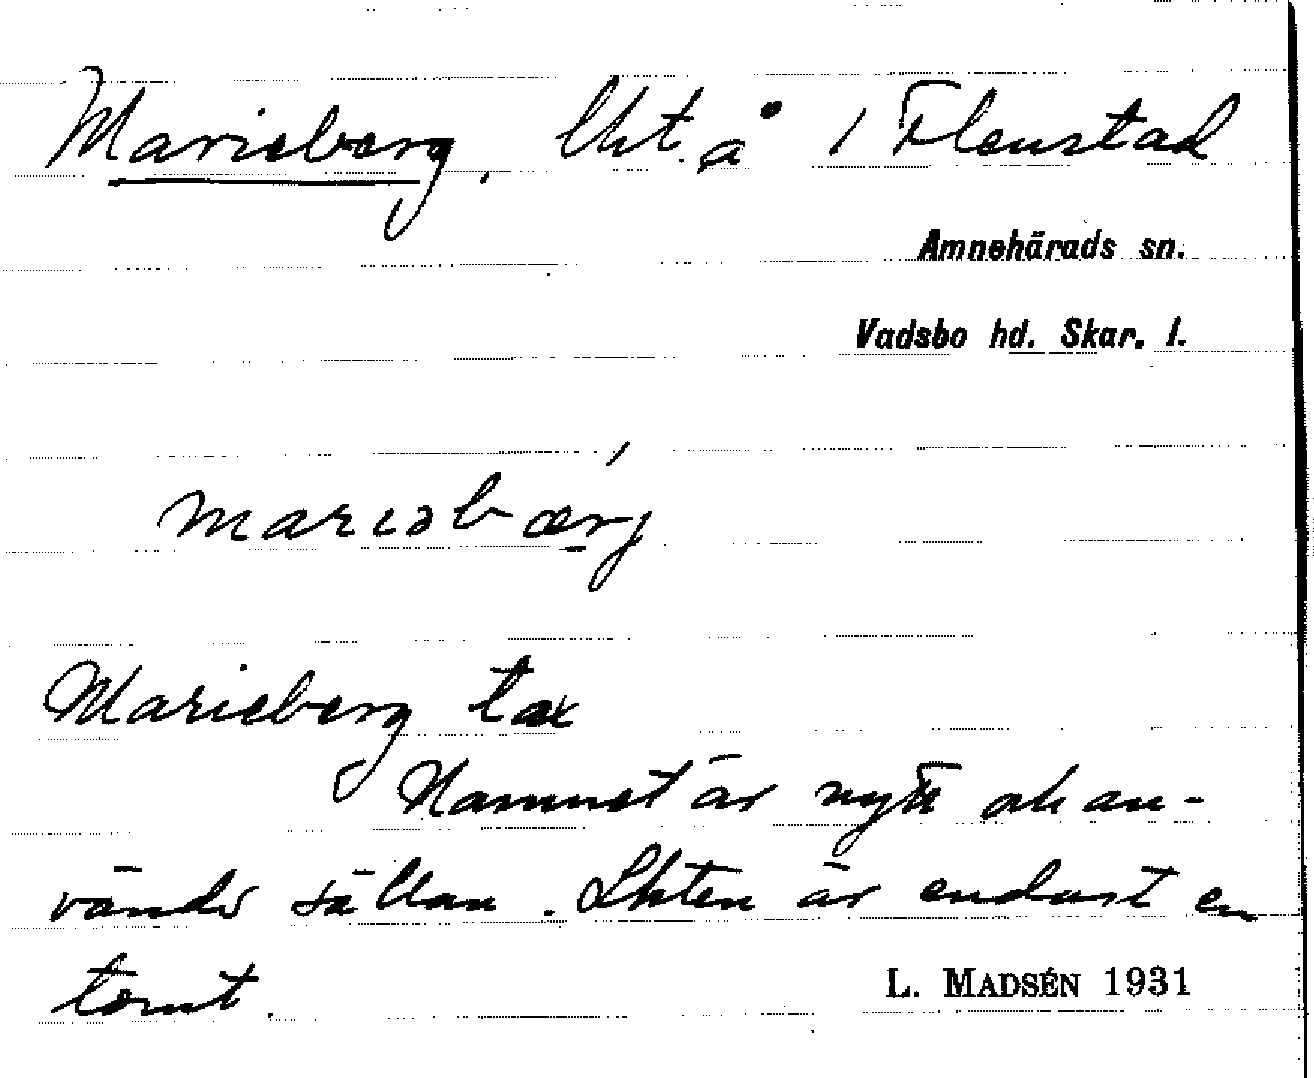 Marieberg, lht. å 1 Flenstad
Amnehärads sn.
Vadsbo hd. Skar. l.
mariəbærj
Marieberg tax
Namnet är nytt och an-
vändes sällan. Lhten är endast en
tomt.
L. MADSÉN 1931